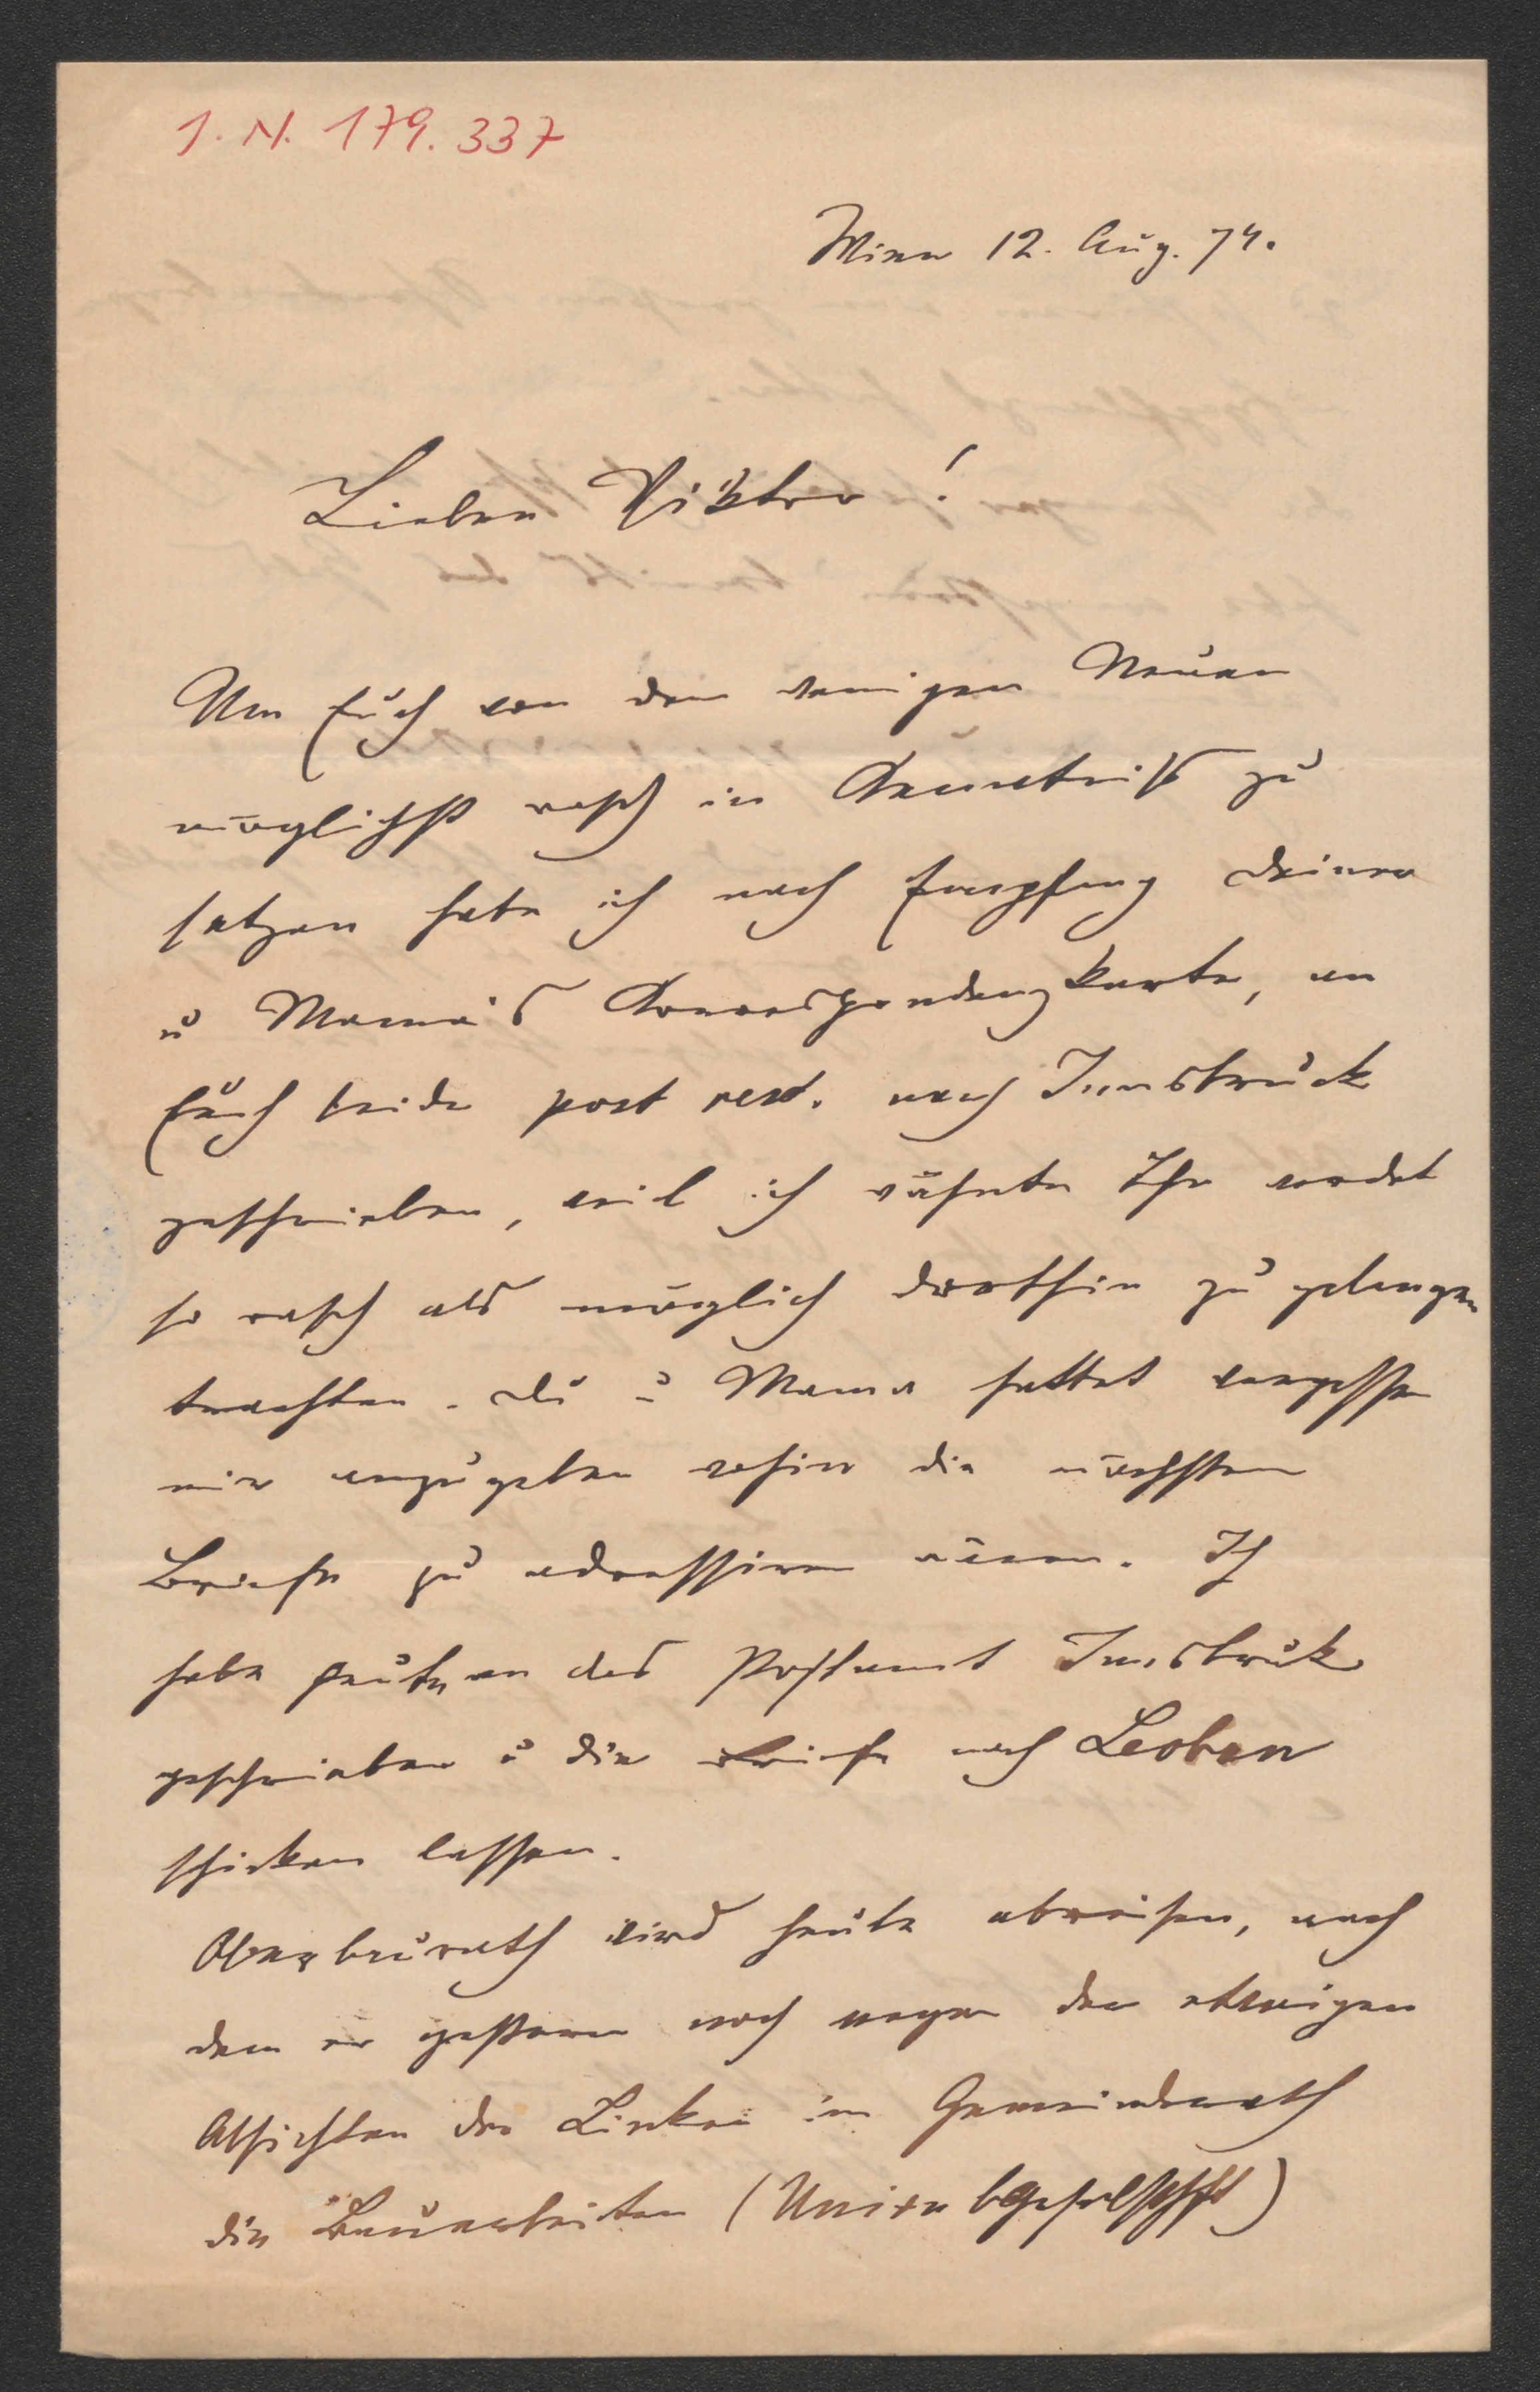 I. N. 179.337
Wien 12. Aug. 74.
Lieber Viktor!
Um Euch von dem wenigen Neuen
möglichst rasch in Kenntniß zu
setzen habe ich nach Empfang Deiner
u Mama's Correspondenzkarte, an
Euch beide post rest. nach Innsbruck
geschrieben, weil ich wähnte Ihr werdet
so rasch als möglich dorthin zu gelangen
trachten. Du u Mama hattet vergessen
mir anzugeben wohin die nächsten
Briefe zu adressiren wären. Ich
habe heute an das Postamt Innsbruk
geschrieben u die Briefe nach Leoben
schicken lassen.
Oberbaurath wird heute abreisen, nach
dem er gestern noch wegen den etwaigen
Absichten der Linken im Gemeinderath
die Bauarbeiten (Union